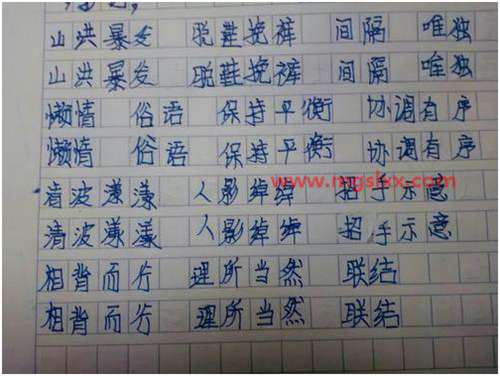 山洪暴发 脱鞋挽裤 间隔 唯独
山洪暴发 脱鞋挽裤 间隔 唯独
懒惰 俗语 保持平衡 协调有序
懒惰 俗语 保持平衡 协调有序
www.mgslxx.com
清波漾漾 人影绰绰 招手示意
清波漾漾 人影绰绰 招手示意
相背而行 理所当然 联结
相背而行 理所当然 联结